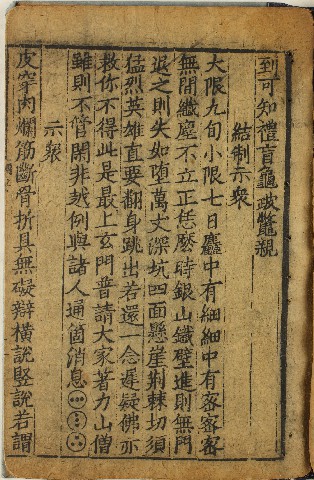 到可知禮盲龜跛鼈親
結制示衆
大限九旬小限七日麤中有細細中有密密密
無間纖塵不立正恁麼時銀山鐵壁進則無門
退之則失如墮萬丈深坑四面懸崖荆棘切須
猛烈英雄直要翻身跳出若還一念遲疑佛亦
救你不得此是最上玄門普請大家著力山僧
雖則不管閑非越例與諸人通箇消息
示衆
皮穿肉爛筋斷骨折具無礙辯橫說竪說若謂